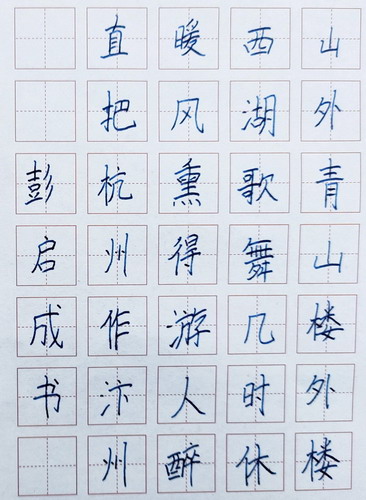 山外青山楼外楼
西湖歌舞几时休
暖风熏得游人醉
直把杭州作汴州
彭启成书